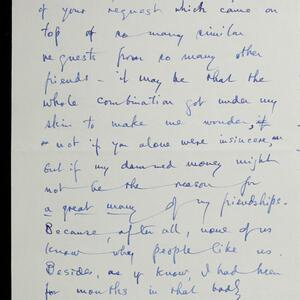 of your request which came on
top of so many similar
requests from so many other
friends - it may be that the
whole combination got under my
skin to make me wonder, if
not if you alone were insincere,
but if my damned money might
not be the reason for
a great many of my friendships.
Because, after all, none of us
know why people like us.
Besides, as y know, I had been
for months in that body